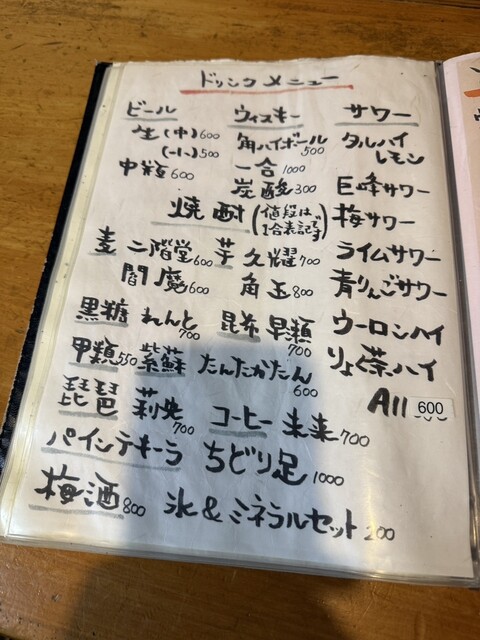 ドリンクメニュー
ビール
生(中)600
(小)500
中瓶600
ウィスキー
角ハイボール
500
一合 1000
炭酸300
サワー
タルハイ
レモン
巨峰サワー
梅サワー
ライムサワー
青りんごサワー
ウーロンハイ
りょく茶ハイ
All 600
焼酎(値段は
1合表記です)
麦 二階堂600 芋 久耀700
閻魔600 角玉800
黒糖 れんと700 昆布
700
甲類550 紫蘇 たんたかたん
600
琵琶 莉央
700
コーヒー 未来700
パインテキーラ ちどり足1000
梅酒800 氷&ミネラルセット200